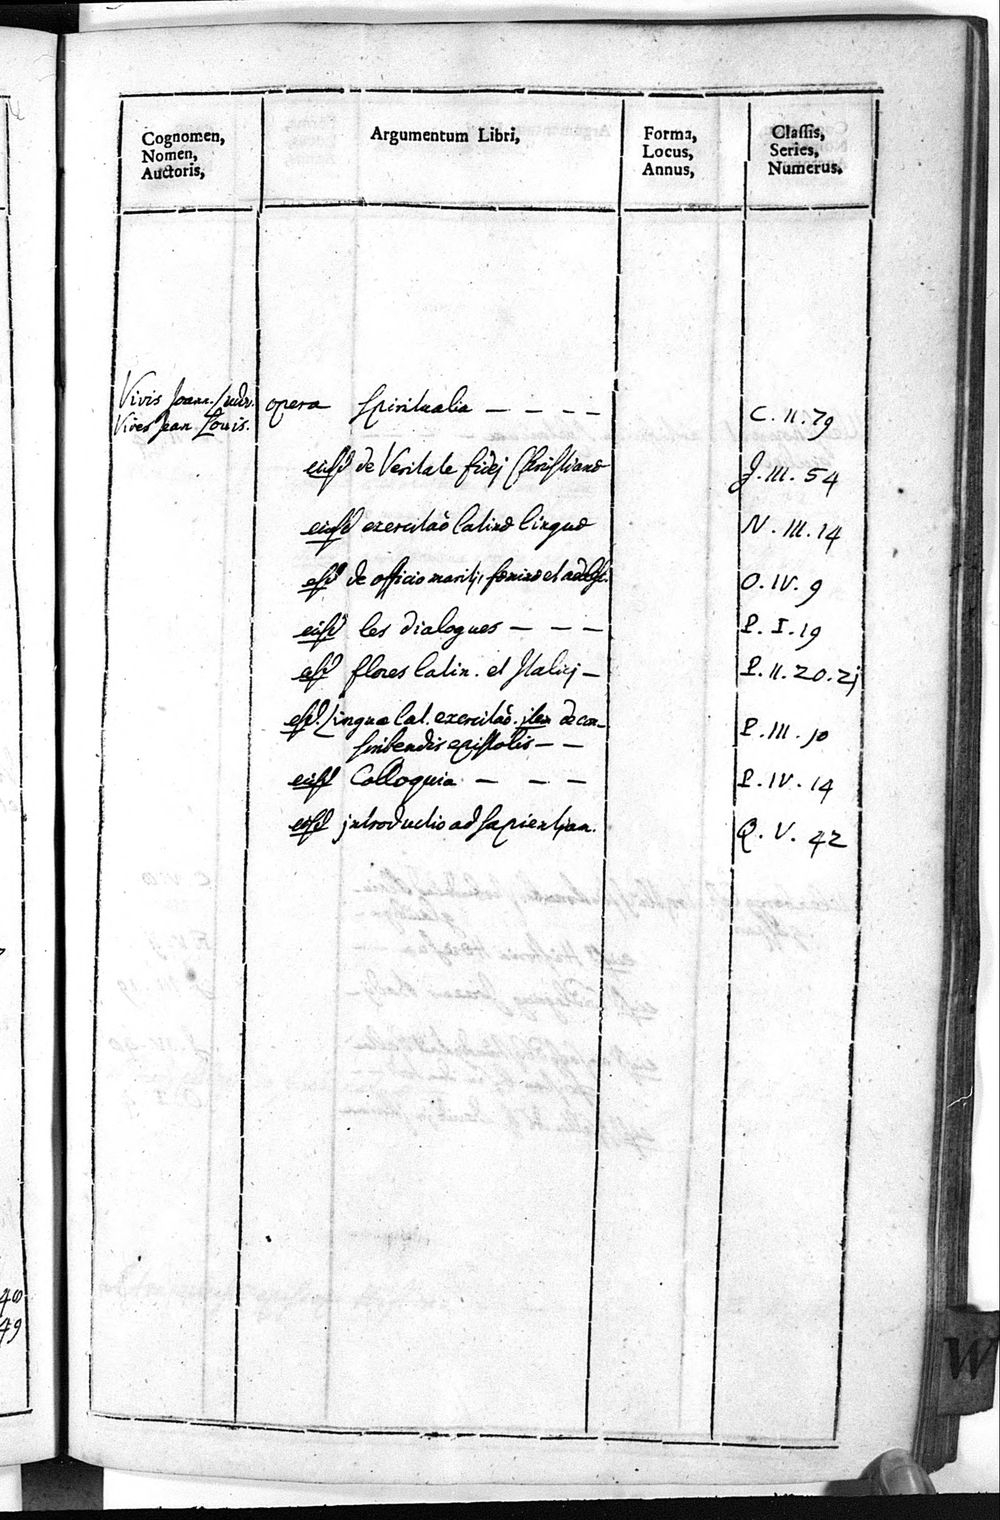 Cognomen,
Nomen,
Auctoris,
Argumentum Libri,
Forma,
Locus,
Annus,
Classis,
Series,
Numerus,
Vivis Joann. Ludv. opera Spiritualia — — — — C. II. 79
Vives Jean Louis.
eiusd de Veritate fidej Christianæ J. III. 54
eiusd exercitaõ latinæ linguæ N. III. 14
eisd de officio maritj, feminæ et O. IV. 9
eiusd les dialogues — — — P. I. 19
eisd flores latin. et Italicj — P. II. 20. 21
eisd. Linguæ lat. exercitaõ. item de con- P. III. 10
scribendis epistolis — —
eiusd Colloquia — — — P. IV. 14
eiusd introductio ad sapientiam. Q. V. 42
40
49
W